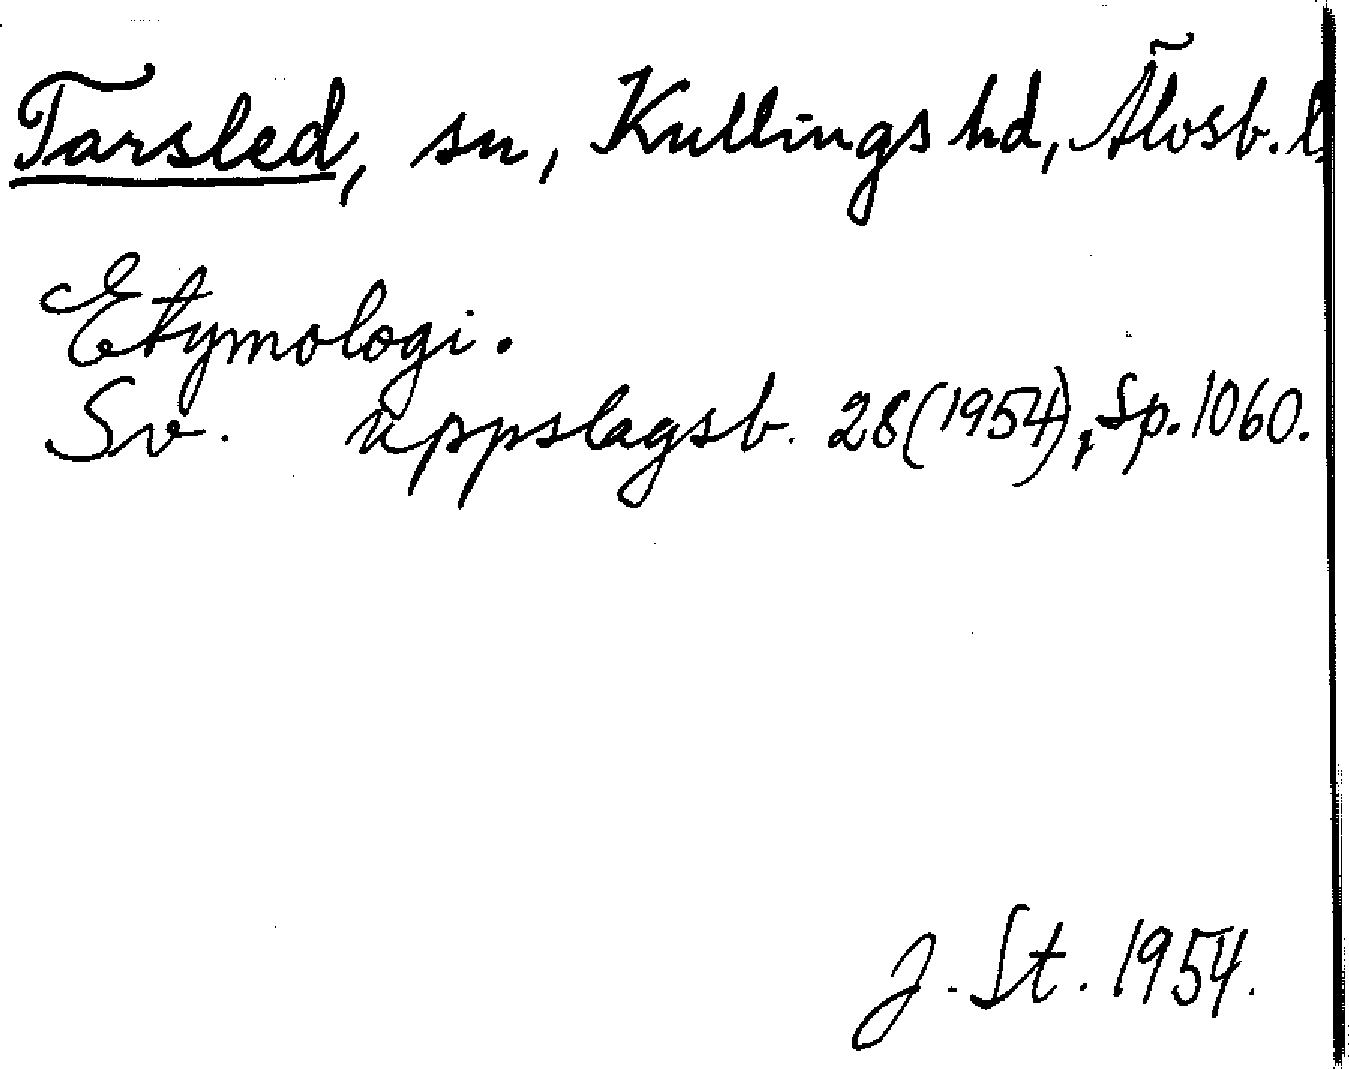 Tarsled, sn, Kullings hd, Älvsb. l.
Etymologi.
Sv. uppslagsb. 28 (1954), Sp. 1060.
J. St. 1954.